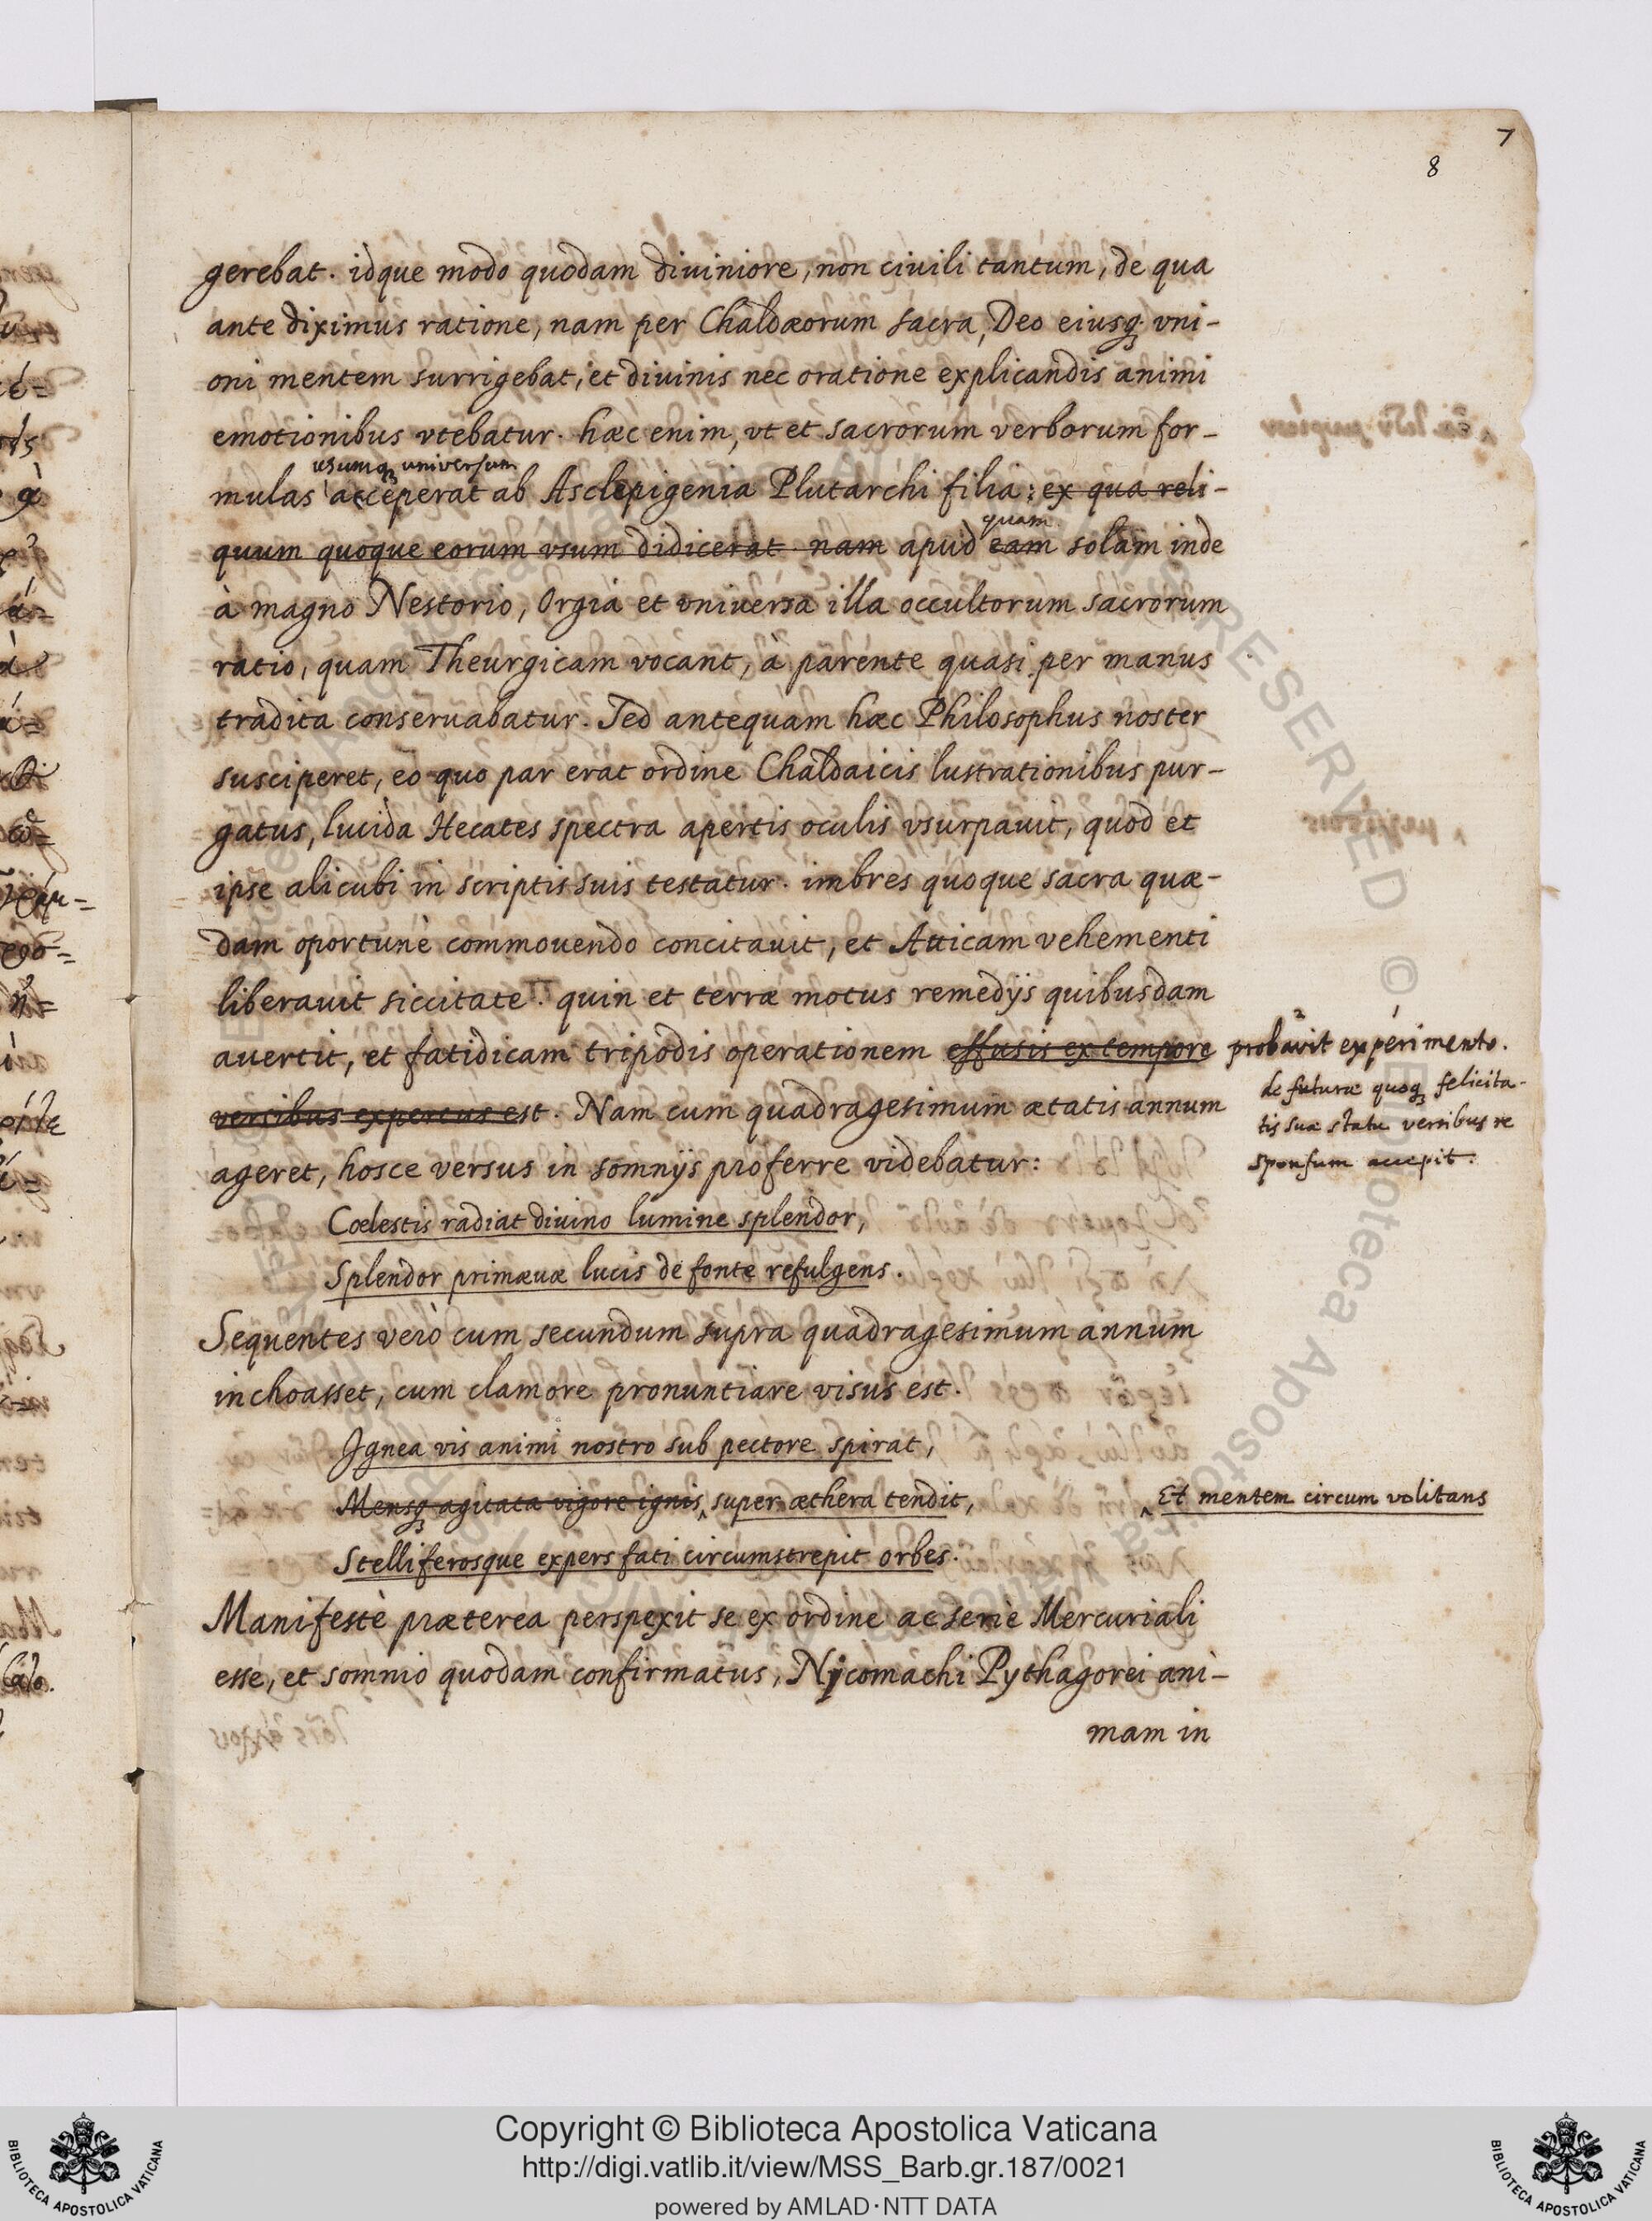 7
8
gerebat. idque modo quodam diuiniore, non ciuili tantum, de qua
ante diximus ratione, nam per Chaldæorum sacra, Deo eiusq; vni-
oni mentem surrigebat, et diuinis nec oratione explicandis animi
emotionibus vtebatur. hæc enim, vt et sacrorum verborum for-
usumq; universum
mulas acceperat ab Asclepigenia Plutarchi filia: ex qua reli-
quam
quum quoque eorum vsum didicerat. nam apud eam solam inde
à magno Nestorio, Orgia et vniuersa illa occultorum sacrorum
ratio, quam Theurgicam vocant, à parente quasi per manus
tradita conseruabatur. Sed antequam hæc Philosophus noster
susciperet, eo quo par erat ordine Chaldaicis lustrationibus pur-
gatus, lucida Hecates spectra apertis oculis vsurpauit, quod et
ipse alicubi in scriptis suis testatur. imbres quoque sacra quæ-
dam oportunè commouendo concitauit, et Atticam vehementi
liberauit siccitate. quin et terræ motus remedijs quibusdam
auertit, et fatidicam tripodis operationem effusis ex tempore probavit experimento.
de futuræ quoq; felicita-
versibus expertus est. Nam cum quadragesimum ætatis annum
tis suæ statu versibus re
ageret, hosce versus in somnijs proferre videbatur:
sponsum accepit.
Cœlestis radiat diuino lumine splendor,
Splendor primæuæ lucis de fonte refulgens.
Sequentes verò cum secundum supra quadragesimum annum
inchoasset, cum clamore pronuntiare visus est.
Ignea vis animi nostro sub pectore spirat,
Mensq; agitata vigore ignis, ‸ super æthera tendit, ‸ Et mentem circum volitans
Stelliferosque expers fati circumstrepit orbes.
Manifestè præterea perspexit se ex ordine ac serie Mercuriali
esse, et somnio quodam confirmatus, Nycomachi Pythagorei ani-
mam in
Copyright © Biblioteca Apostolica Vaticana
http://digi.vatlib.it/view/MSS_Barb.gr.187/0021
powered by AMLAD·NTT DATA
BIBLIOTECA APOSTOLICA VATICANA
BIBLIOTECA APOSTOLICA VATICANA